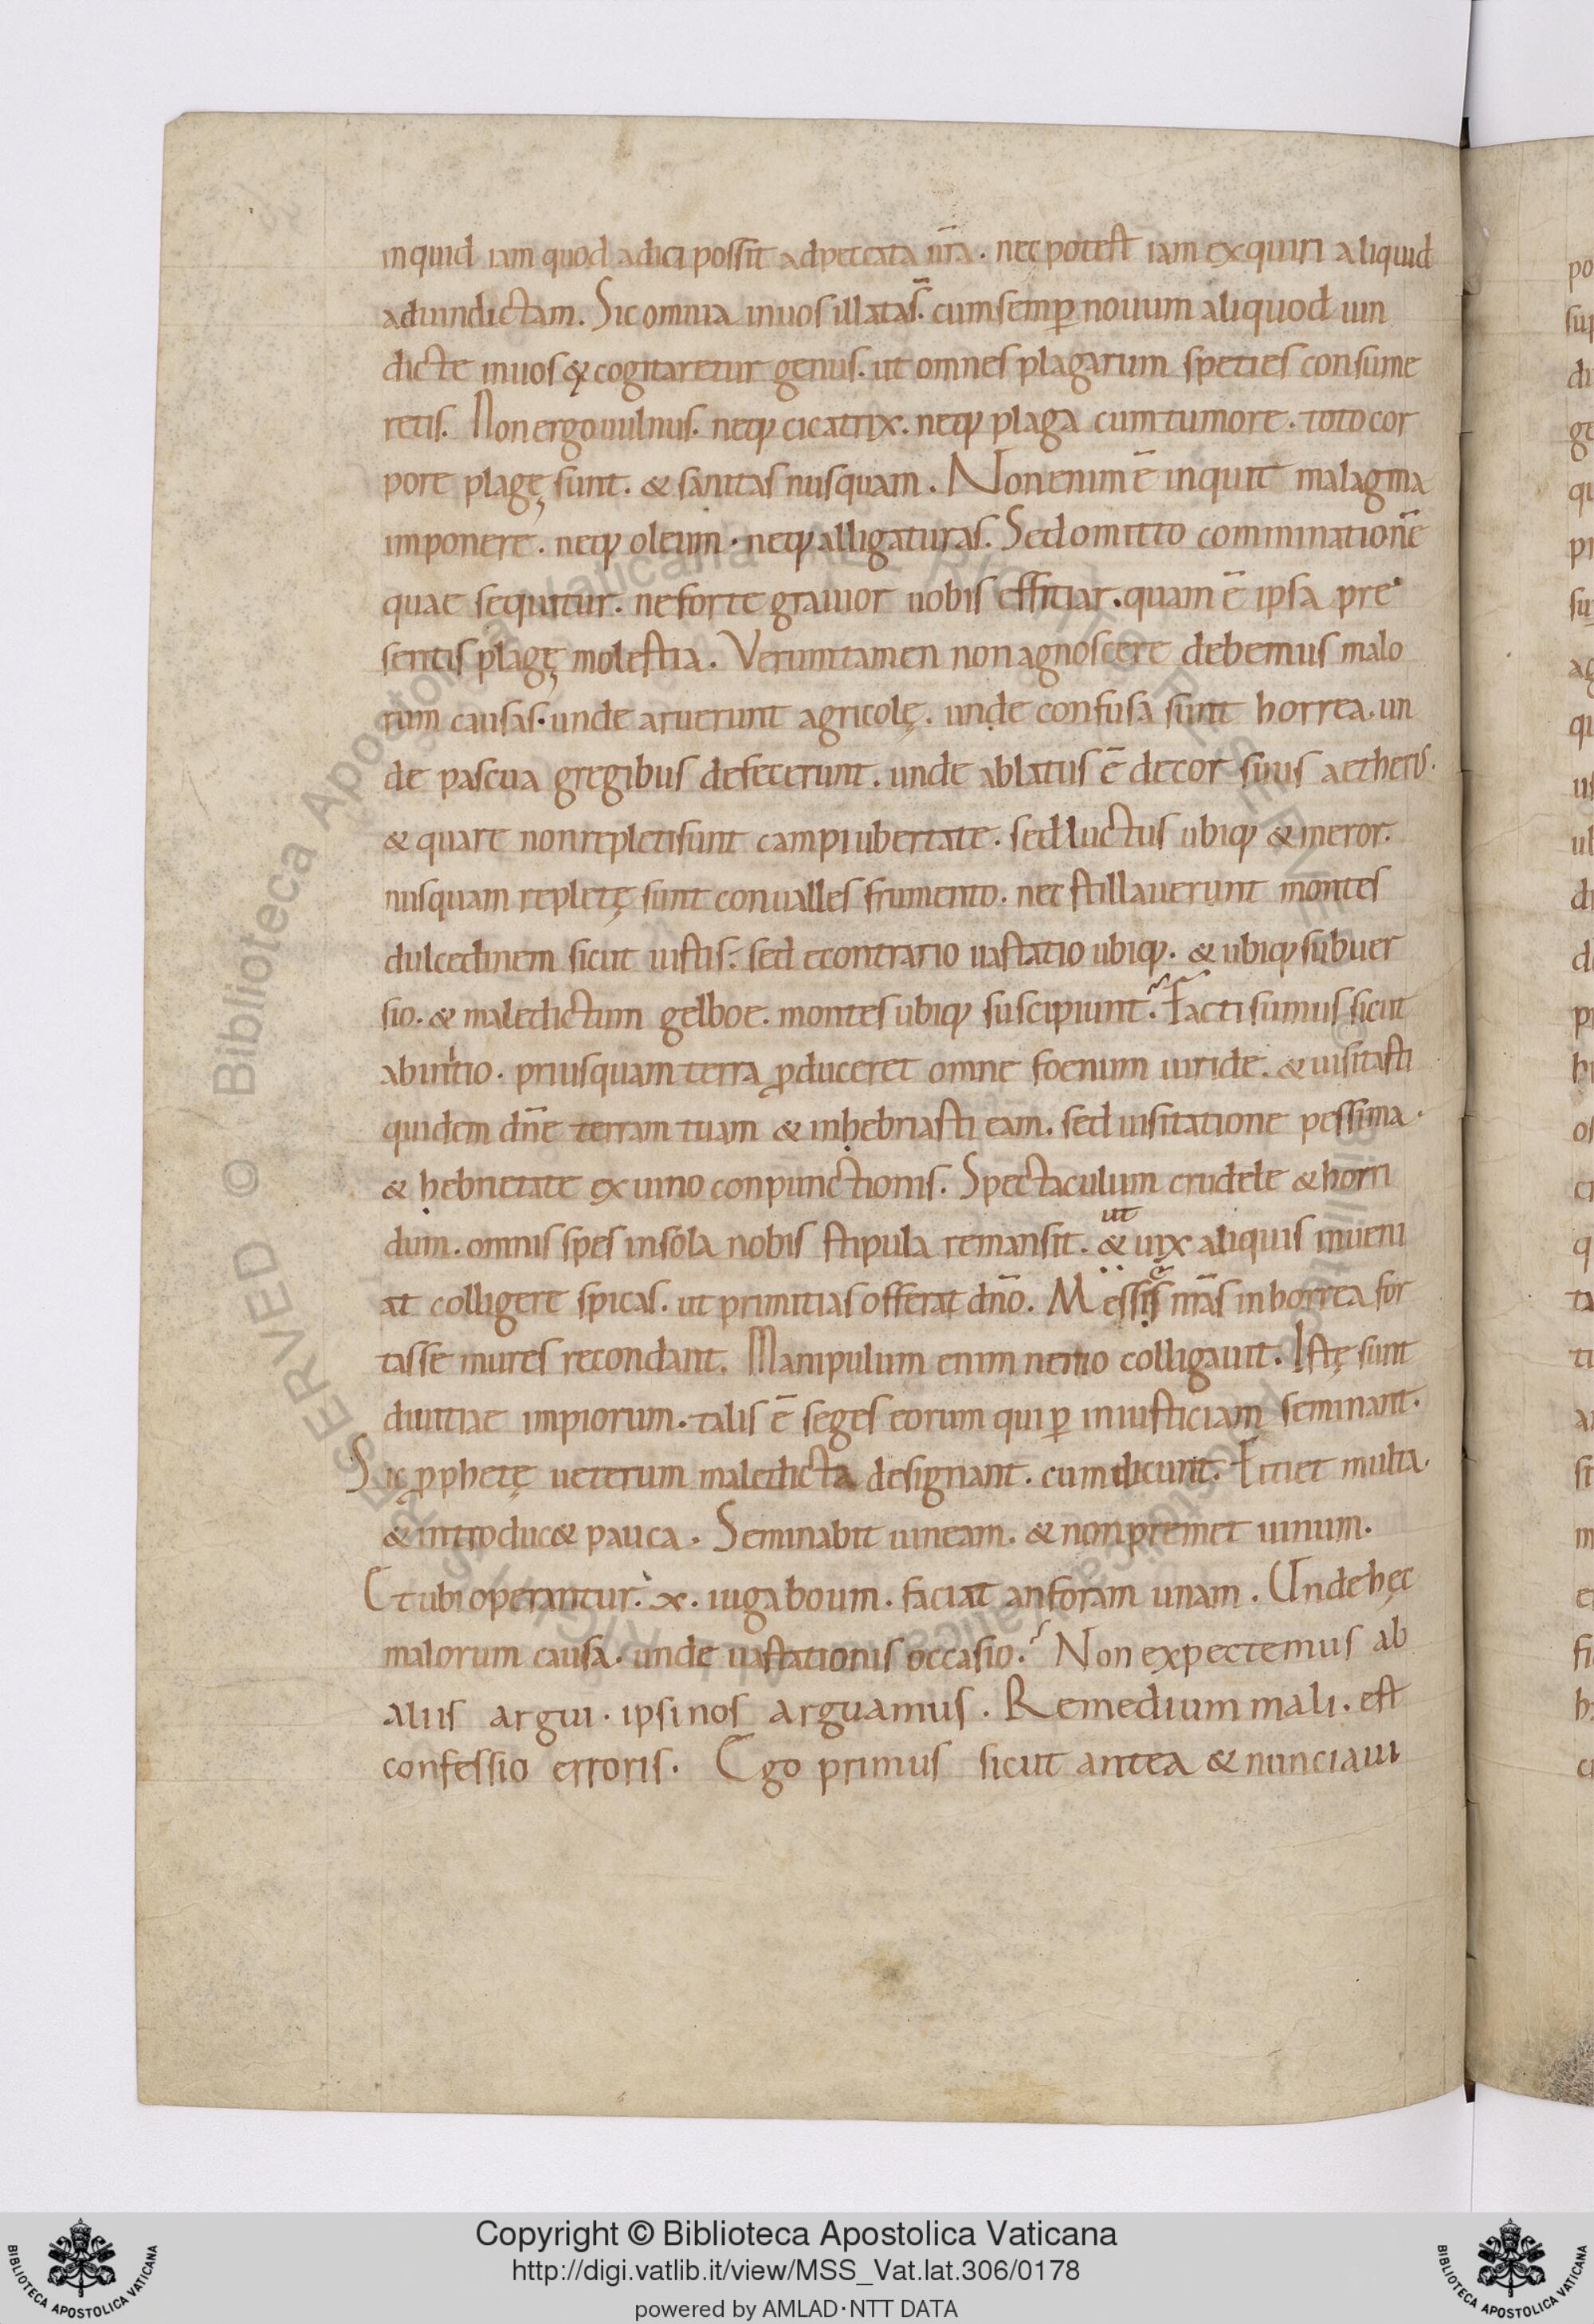 inquid iam quod adici possit ad peccata nr̄a. nec potest iam exquiri aliquid
ad uindictam. Sic omnia in uos illata s̄. cum semꝑ nouum aliquod uin
dicte in uos exqcogitaretur genus. ut omnes plagarum speties consume
retis. Non ergo uulnus. neqꝫ cicatrix. neqꝫ plaga cum tumore. toto cor
pore plagę sunt. & sanitas nusquam. Non enim ē inquit malagma
imponere. neqꝫ oleum. neqꝫ alligaturas. Sed omitto comminationē
quae sequitur. ne forte grauior uobis efficiar. quam ē ipsa pre
sentis plagę molestia. Veruntamen non agnoscere debemus malo
rum causas. unde aruerunt agricolę. unde confusa sunt horrea. un
de pascua gregibus defecerunt. unde ablatus ē decor suus aetheris.
& quare non repleti sunt campi ubertate. sed luctus ubiqꝫ & meror.
nusquam repletę sunt conualles frumento. nec stillauerunt montes
dulcedinem sicut iustis. sed econtrario uastatio ubiqꝫ. & ubiqꝫ subuer
sio. & maledictum gelboe. montes ubiqꝫ suscipiunt. Facti sumus sicut
ab initio. priusquam terra ꝓduceret omne foenum uiride. & uisitasti
quidem dn̄e terram tuam & inhebriasti eam. sed uisitatione pessima.
& hebrietate ex uino conpunctionis. Spectaculum crudele & horri
ut
dum. omnis spes in sola nobis stipula remansit. & uix aliquis inueni
at colligere spicas. ut primitias offerat dn̄o. Messis nr̄as in horrea for
tasse mures recondant. Manipulum enim nemo colligauit. Istę sunt
diuitiae impiorum. talis ē seges eorum qui ꝑ iniusticiam seminant.
Sic ꝓphetę ueterum maledicta designant. cum dicunt. Eiciet multa.
& introduc& pauca. Seminabit uineam. & non premet uinum.
Et ubi operantur. x. iuga boum. faciat anforam unam. Unde hęc
malorum causa. unde uastationis occasio. Non expectemus ab
aliis argui. ipsi nos arguamus. Remedium mali. est
confessio erroris. Ego primus sicut antea & nunc iaui
Copyright © Biblioteca Apostolica Vaticana
http://digi.vatlib.it/view/MSS_Vat.lat.306/0178
powered by AMLAD·NTT DATA